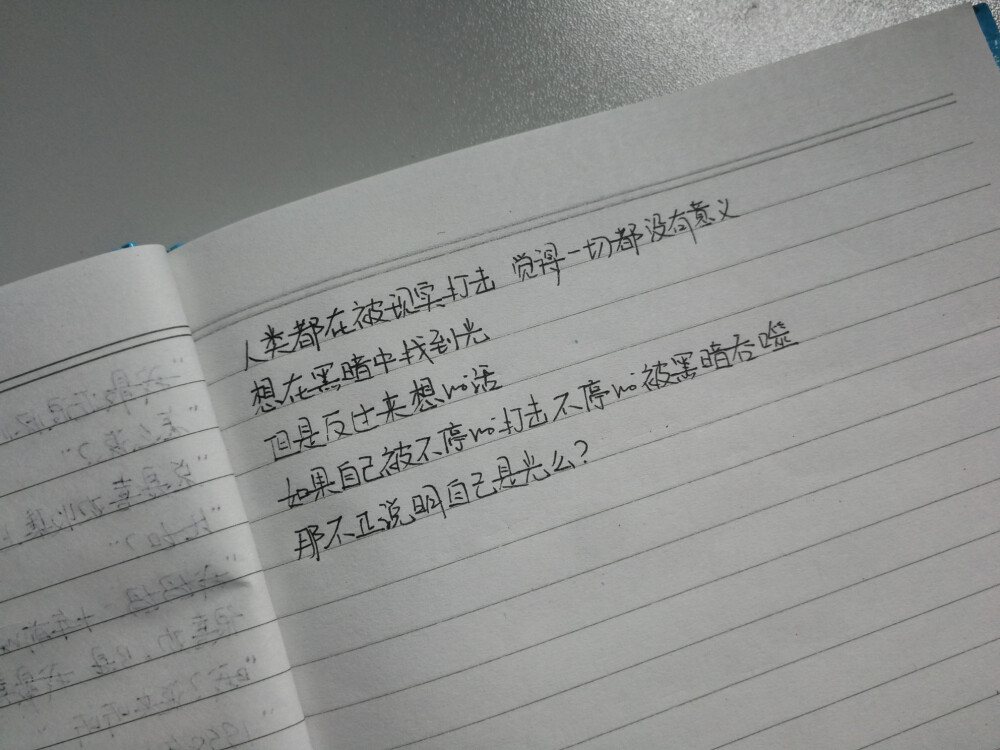 人类都在被现实打击 觉得一切都没有意义
想在黑暗中找到光
但是反过来想的话
如果自己被不停的打击不停的被黑暗吞噬
那不正说明自己是光么?